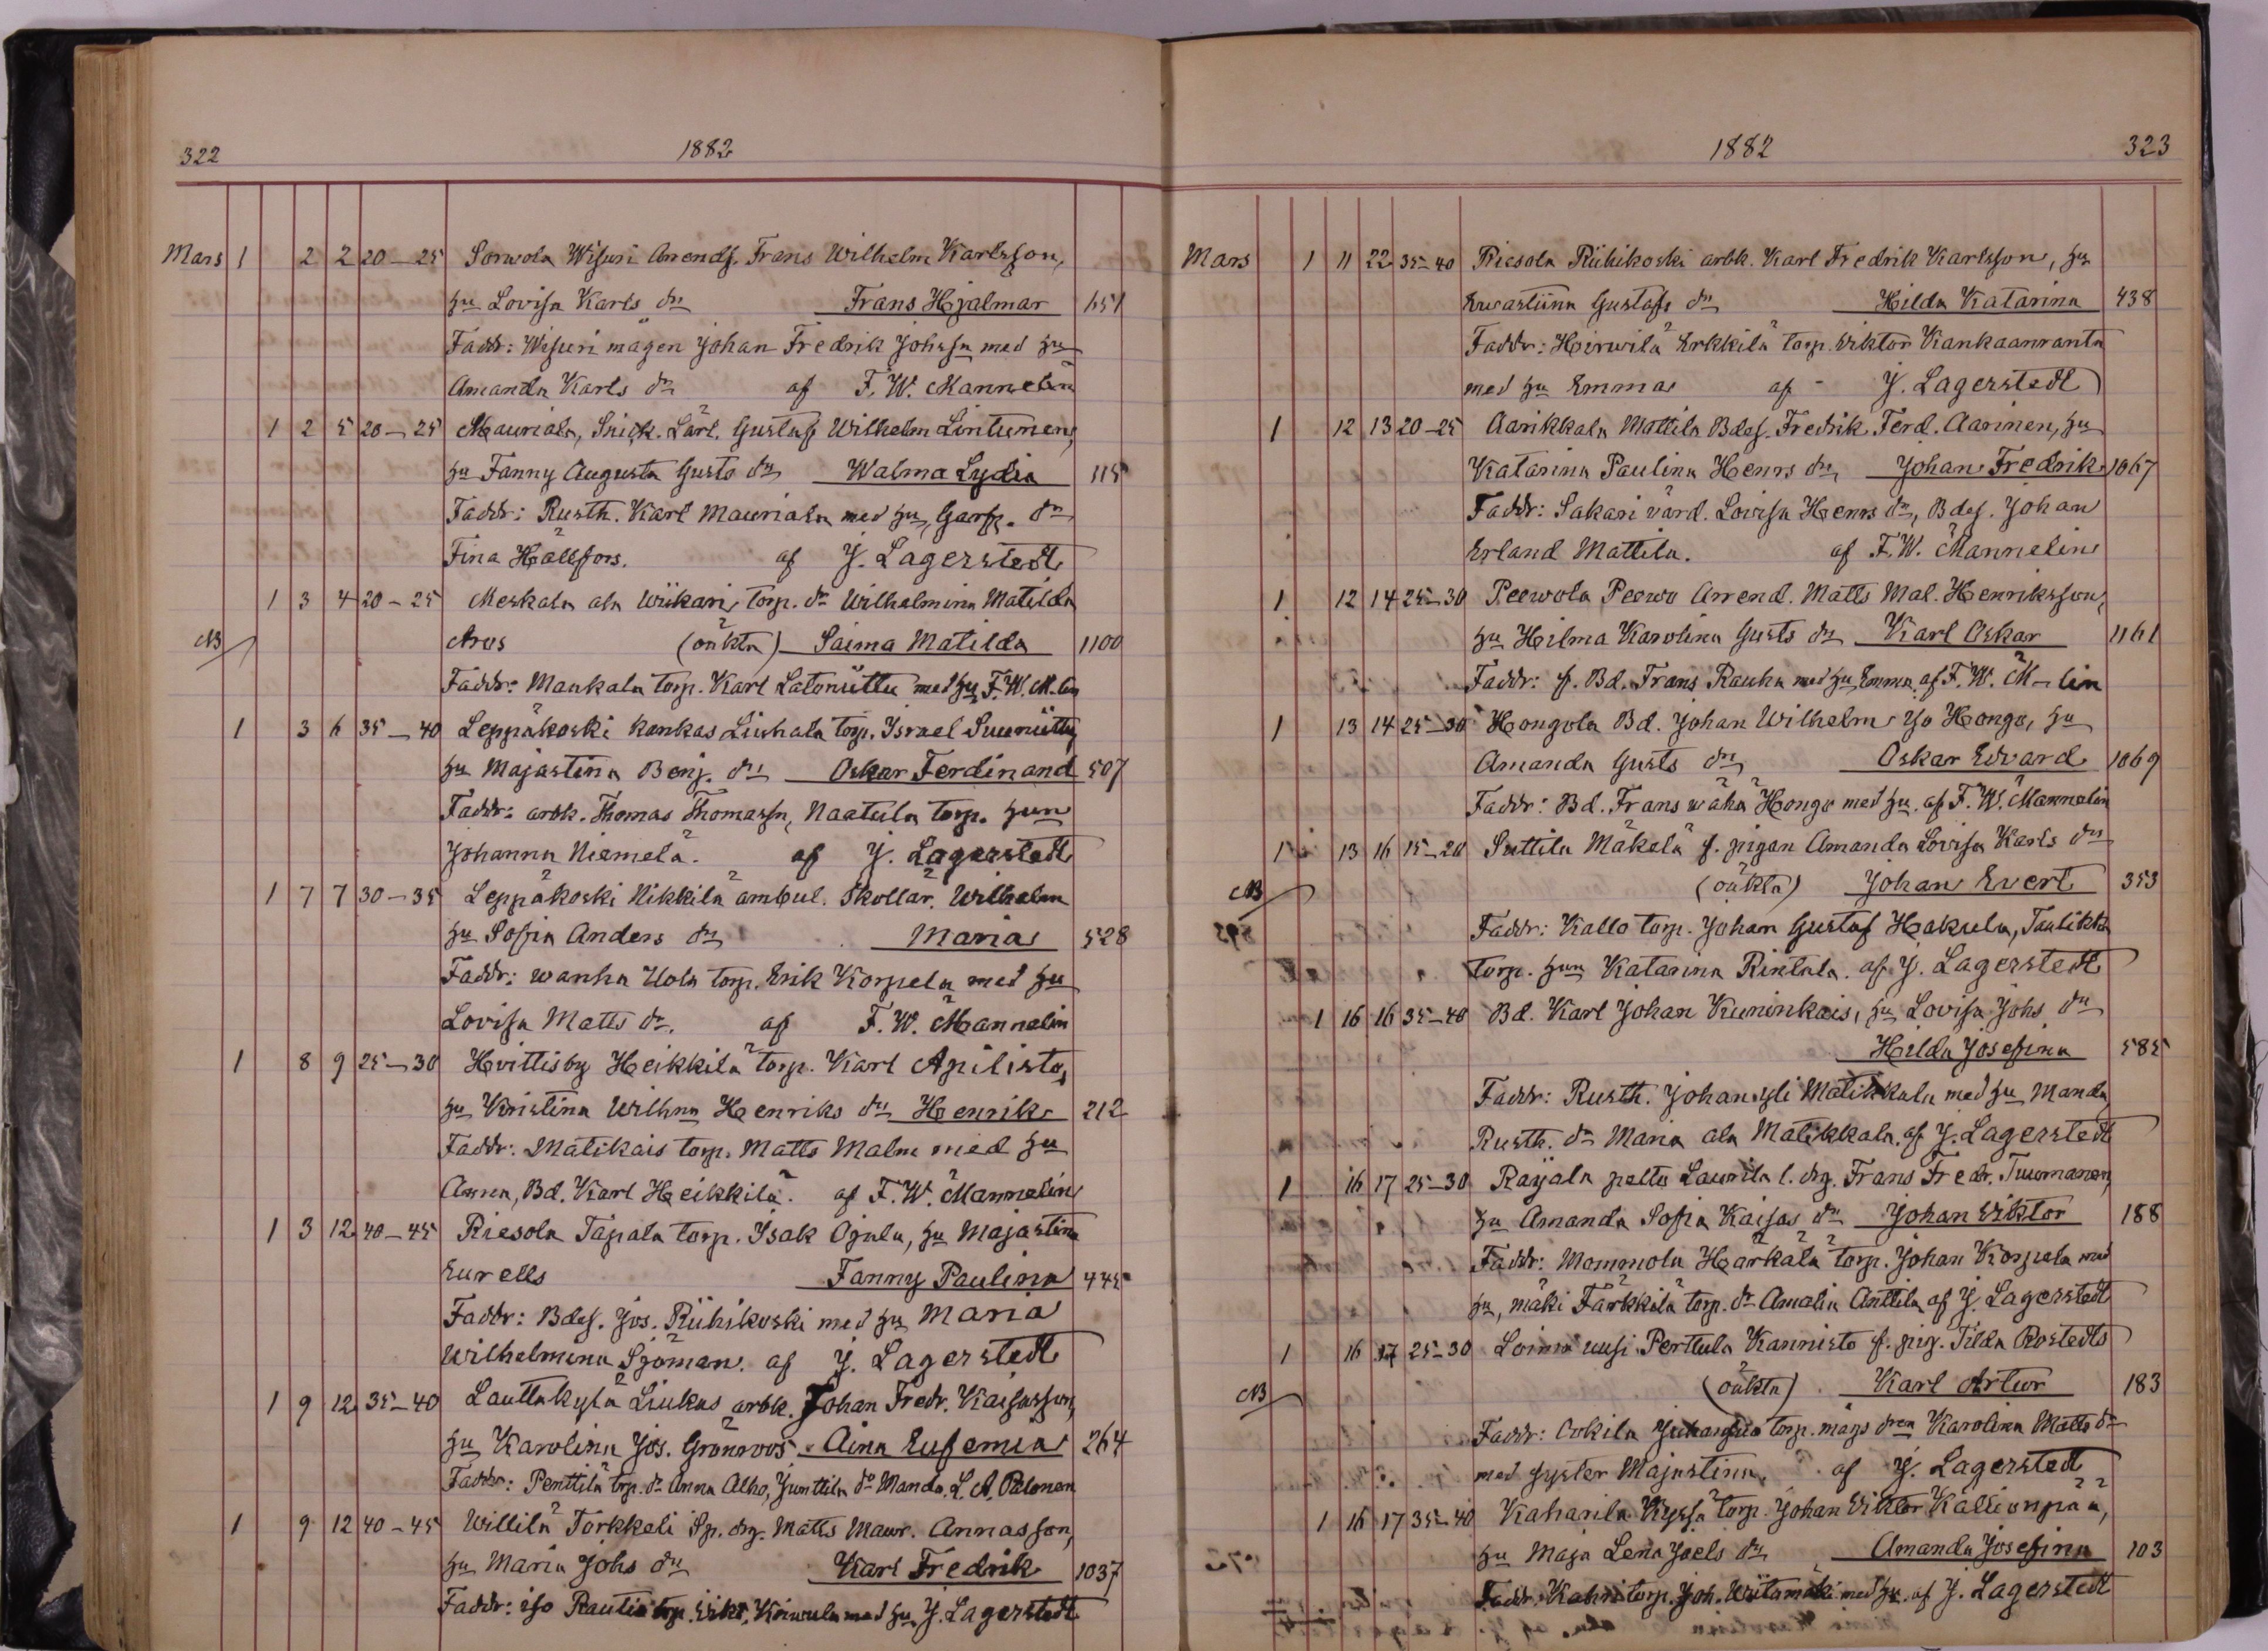 322 1882
Mars 1 2 2 20-25 Sorwola Wisuri Arends. Frans Wilhelm Karlsson,
hu Lovisa Karls dr Frans Hjalmar 651
Faddr: Wisuri mågen Johan Fredrik Johssn med hu
Amanda Karls dr af F. W. Mannelin
1 2 5 20-25 Mauriala, Snick. Lärl. Gustaf Wilhelm Lintunen,
hu Fanny Augusta Gusts dr Walma Lydia 115
Faddr: Rusth. Karl Mauriala med hu, Garfv. dr
Fina Hällfors. af J. Lagerstedt
1 3 4 20-25 Meskala ala Wiikari, torp. dr Wilhelmina Matilda
NB Aros (oäkta) Saima Matilda 1100
Faddr: Mankala torp. Karl Latoniittu med hu F. W. M.lin
1 3 6 35-40 Leppäkoski Kankas Liuhala torp. Israel Suuniittu,
hu Majastina Benj. dr Oskar Ferdinand 507
Faddr: arbk. Thomas Thomassn, Naatula torp. hun
Johanna Niemelä. af J. Lagerstedt
1 7 7 30-35 Leppäkoski Nikkilä ambul. Skollär. Wilhelm
hu Sofia Anders dr Maria 528
Faddr: wanha Uola torp. Erik Korpela med hu
Lovisa Matts dr. af F. W. Mannelin
1 8 9 25-30 Hvittisby Heikkilä torp. Karl Apilisto,
hu Kristina Wilhna Henriks dr Henrik 212
Faddr: Matikais torp. Matts Malm med hu
Anna, Bd. Karl Heikkilä. af F. W. Mannelin
1 3 12 40-45 Riesola Tapala torp. Isak Ojala, hu Majastina
Eurells Fanny Paulina 445
Faddr: Bdes. Jos. Riihikoski med hu Maria
Wilhelmina Sjöman. af J. Lagerstedt
1 9 12 35-40 Lauttakylä Liukas arbk. Johan Fredr. Kaisasson,
hu Karolina Jos. Grönroos Aina Eufemia 264
Faddr: Penttilä torp. dr Anna Alho, Junttila do Manda. L. A. Palonen
1 9 12 40-45 Willilä Torkkeli Sp. drg. Matts Maur. Annasson,
hu Maria Johs dr Karl Fredrik 1037
Faddr: iso Rautio torp. Vikt. Koiwula med hu J. Lagerstedt
1882 323
Mars 1 11 22 35-40 Riesola Riihikoski arbk. Karl Fredrik Karlsson, hu
Ewastiina Gustafs dr Hilda Katarina 438
Faddr: Hoirwilä Erkkilä torp. Viktor Kankaanranta
med hu Emma af J. Lagerstedt
1 12 13 20-25 Aarikkala Mattila Bdes. Fredrik Ferd. Aarinen, hu
Katarina Paulina Henrs dr Johan Fredrik 1067
Faddr: Sakari värd. Lovisa Henrs dr, Bdes. Johan
Erland Mattila. af F. W. Mannelin
1 12 14 25-30 Peewola Peewo Arrend. Matts Mal. Henriksson,
hu Hilma Karolina Gusts dr Karl Oskar 1161
Faddr: f. Bd. Frans Rauha med hu Emma. af F. W. M-lin
1 13 14 25-30 Hongola Bd. Johan Wilhelm Yo Hongo, hu
Amanda Gusts dr Oskar Edvard 1069
Faddr: Bd. Frans wähä Hongo med hu. af F. W. Mannelin
1 13 16 15-20 Suttila Mäkelä f. pigan Amanda Lovisa Karls dr
NB (oäkta) Johan Evert 353
Faddr: Kallo torp. Johan Gustaf Hakula, Taulikka
torp. hun Katarina Rintala. af J. Lagerstedt
1 16 16 35-40 Bd. Karl Johan Kuninkais, hu Lovisa Johs dr
Hilda Josefina 585
Faddr: Rusth. Johan yli Matikkala med hu Manda,
Rusth. dr Maria ala Matikkala. af J. Lagerstedt
1 16 17 25-30 Raijala peltu Laurila l. drg. Frans Fredr. Tuomanen,
hu Amanda Sofia Kaisas dr Johan Viktor 188
Faddr: Mommola Härkälä torp. Johan Korpela med
hu, mäki Färkkilä torp. dr Amalia Anttila af J. Lagerstedt
1 16 17 25-30 Loima uusi Perttula Kannisto f. pig. Tilda Rostedts
NB (oäkta) Karl Artur 183
Faddr: Torp. mågs dren Karolina Matts dr
med syster Majastina. af J. Lagerstedt
1 16 17 35-40 Kaharila Kyssä torp. Johan Viktor Kallionpää,
hu Maja Lena Joels dr Amanda Josefina 103
Faddr. Kahri torp. Joh. Wiitamäki med hu. af J. Lagerstedt